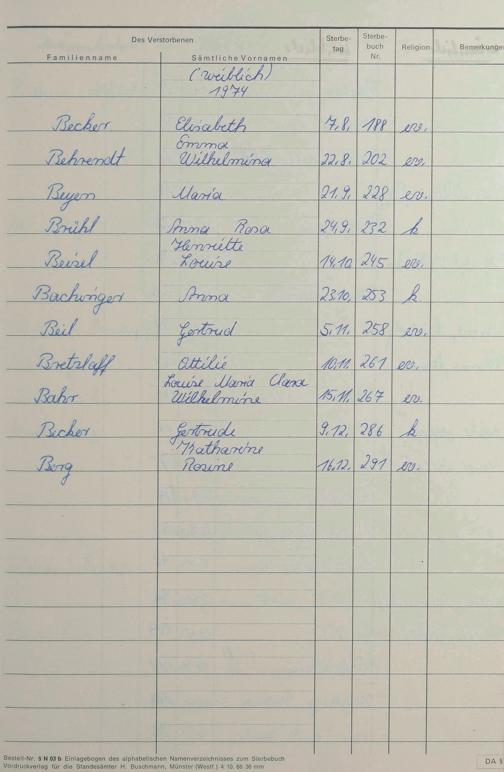 Des Verstorbenen Sterbe- Sterbe-
tag buch Religion Bemerkungen
Familienname Sämtliche Vornamen Nr.
(weiblich)
1974
Becker Elisabeth 7.8. 188 ev.
Emma
Behrendt Wilhelmina 22.8. 202 ev.
Beyen Maria 21.9. 228 ev.
Brühl Anna Rosa 24.9. 232 k
Henriette
Beisel Louise 14.10. 245 ev.
Bachwinger Anna 23.10. 253 k
Beil Gertrud 5.11. 258 ev.
Bretzlaff Ottilie 10.11. 261 ev.
Louise Maria Clara
Bahr Wilhelmine 15.11. 267 ev.
Becker Gertrude 9.12. 286 k
Katharine
Berg Rosine 16.12. 291 ev.
Bestell-Nr. 5 N 03 b Einlagebogen des alphabetischen Namenverzeichnisses zum Sterbebuch
Vordruckverlag für die Standesämter H. Buschmann, Münster (Westf.) 4 10. 66 36 mm
DA